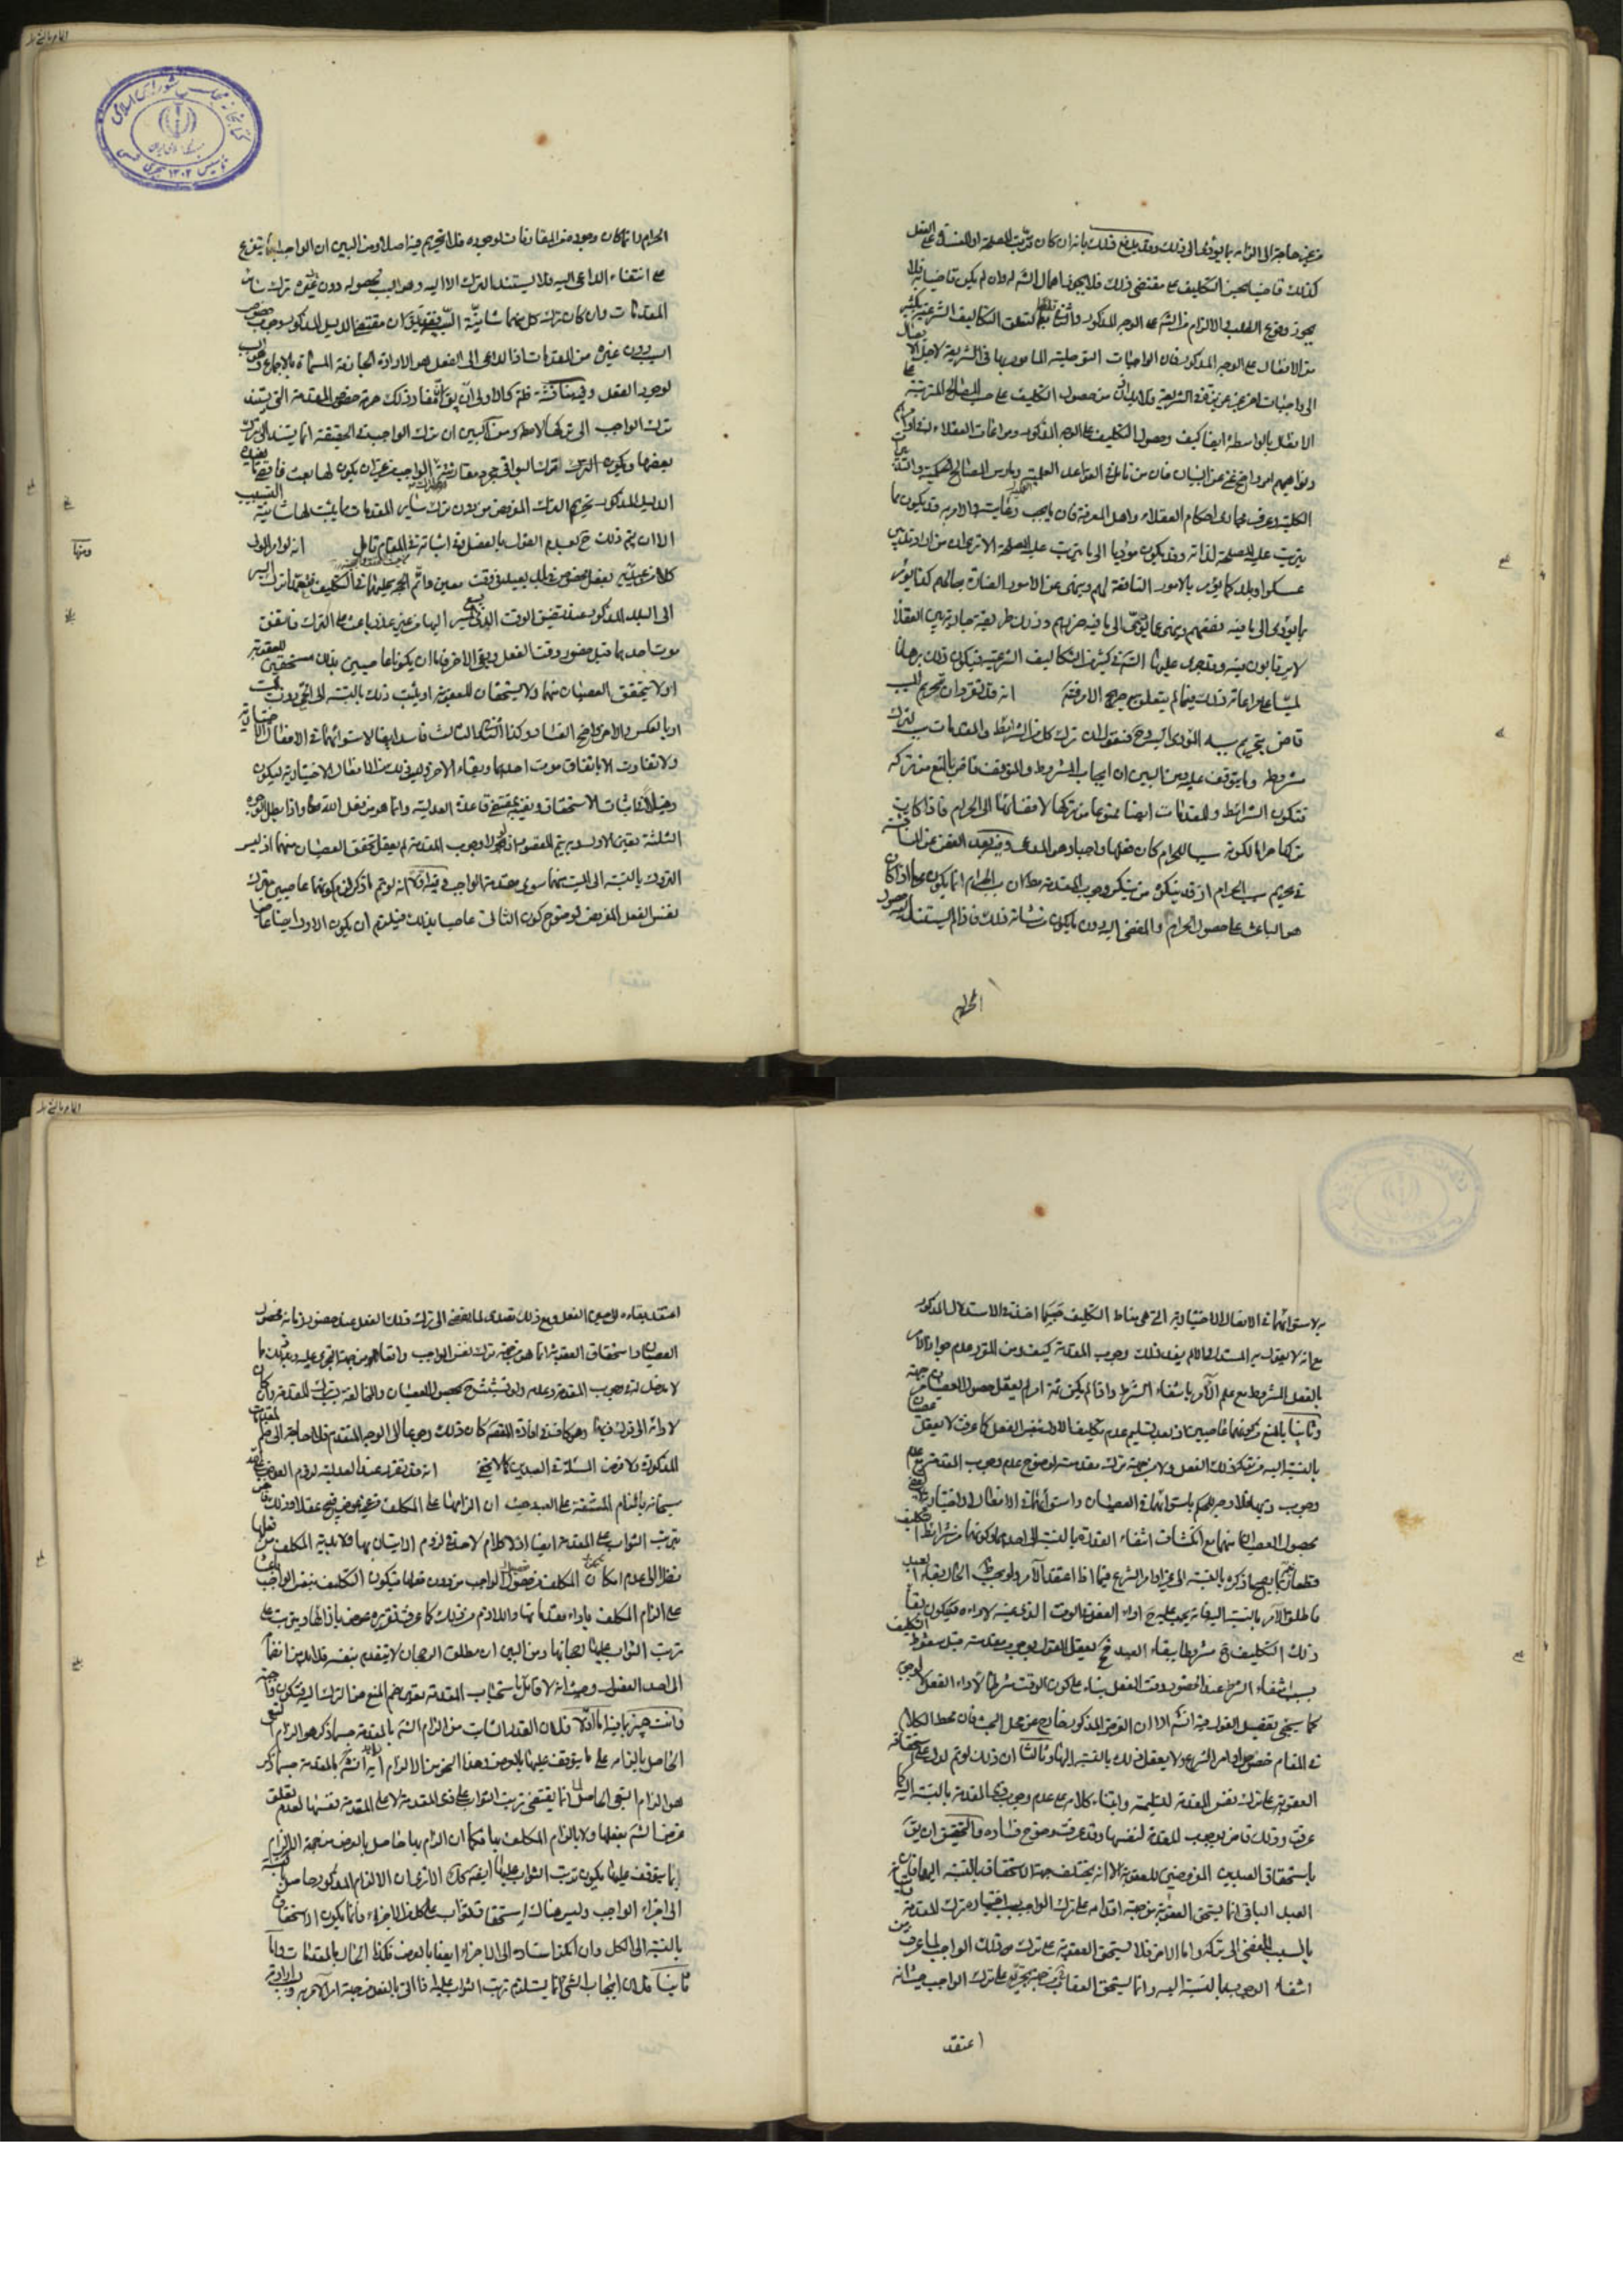 من غير حاجة الى الزامه بما يؤدى الى ذلك وقد يدفع ذلك بانه ان كان ترتب المصلحة او المفسدة على الفعل
كذلك قاضيا بحسن التكليف على مقتضى ذلك فلا يجوز اهمال الشرع له وان لم يكن قاضيا به فلا
يجوز وقوع الطلب والالزام من الشرع على الوجه المذكور واقتضائه لتعلق التكاليف الشرعية بكثير
من الافعال على الوجه المذكور فان الواجبات التوصلية المأمور بها فى الشريعة لاجل الايصال
الى واجبات اخر غير عزيزة فى الشريعة ولا بد اذن من حصول التكليف على حسب المصالح المترتبة على
الافعال بالواسطة ايضا كيف وحصول التكليف على الوجه المذكور ومراعات العقلاء له فى اوامرهم
ونواهيهم امر واضح غنى عن البيان فان من تامل فى القواعد العلمية ومارس المصالح الحكمية والتدبيرات
الكلية وعرف مجارى احكام العقلاء واهل المعرفة فان ما يجب رعايته والامر به قد يكون مما
يترتب عليه المصلحة لذاته وقد يكون مؤديا الى ما يترتب عليه المصلحة الا ترى ان من اراد تدبير
عسكر او بلد كما يؤمر بالامور النافعة لهم وينهى عن الامور الضارة بحالهم كذا يؤمر
بما يؤدى الى ما فيه نفعهم وينهى عما يؤدى الى ما فيه ضررهم وذلك طريقة جارية بين العقلاء
لا يرتابون فيه وقد جرى عليها الشرع فى كثير من التكاليف الشرعية فيكون ذلك برهانا
لميا على مراعاته ذلك فيما لم يتعلق به صريح الامر منه انه قد تقرر ان تحريم المسبب
قاض بتحريم سببه المؤدى اليه وح فنقول ان ترك كل من الشرائط والمقدمات سبب لترك
مشروطه وما يتوقف عليه ومن البين ان ايجاب المشروط والمتوقف قاض بالمنع من تركه
فتكون الشرائط والمقدمات ايضا ممنوعا من تركها لافضائها الى الحرام فاذا كان
تركها حراما لكونه سببا للحرام كان فعلها واجبا وهو المدعى وفيه بعد الغض عن المناقشة
فى تحريم سبب الحرام اذ قد ينكره من ينكر وجوب المقدمة مطلقا ان سبب الحرام انما يكون حراما اذا كان
هو الباعث على حصول الحرام والمفضى اليه دون ما يكون من شأنه ذلك فاذا لم يستند اليه حصول
الحرام
الحرام وانما كان وجوده من المقارنات لوجوده فلا تحريم فيه اصلا ومن البين ان الواجب انما يتفرع
على انتفاء الداعى اليه فلا يستند الترك الا اليه وهو السبب لحصوله دون غيره من ترك سائر
المقدمات وان كان ترك كل منها شانية التسبب فان مقتضى الدليل المذكور وجوب خصوص
السبب دون غيره من المقدمات اذ الداعى الى الفعل هو الارادة الجازمة المسماة بالاجماع وهو السبب
لوجود الفعل وفيه مناقشة ظاهرة كالاولى ان يق اقتضاء ذلك حرمة خصوص المقدمة التى يستند
ترك الواجب الى تركها لا مطلقا ومن البين ان ترك الواجب فى الحقيقة انما يستند الى ترك
بعضها ويكون الترك لترك البواقى مجرد مقارنته لترك الواجب من غير ان يكون لها بعث فاقتضاء
الدليل المذكور تحريم الترك المفروض من دون ترك سائر المقدمات مما يثبت لها شانية التسبيب
الا ان يتم ذلك ح بعدم القول بالفصل وفى اثباته فى المقام تامل انه لو امر المولى
كلا من عبديه بفعل مخصوص فى بلد بعيد فى وقت معين واتم الحجة عليهما فى التكليف فتعمدا ترك السير
الى البلد المذكور عند تضيق الوقت الذى يسع السير اليها من غير عذر باعث على الترك فاتفق
موت احدهما قبل حضور وقت الفعل وبقى الاخر فاما ان يكونا عاصيين بذلك مستحقين للعقوبة
او لا يتحقق العصيان منهما ولا يستحقان للعقوبة او يثبت ذلك بالنسبة الى الحى دون الميت
او بالعكس والامر واضح الفساد وكذا الثالث فاسد ايضا لاستوائهما فى الافعال الاختيارية
ولا تفاوت الا باتفاق موت احدهما وبقاء الاخر وليس ذلك من الافعال الاختيارية ليكون
دخيلا فى اثبات الاستحقاق ونفيه بمقتضى قاعدة العدلية وانما هو من فعل الله تعالى واذا بطل الوجوه
الثلثة تعين الاول وبه يتم المقصود اذ لولا وجوب المقدمة لم يعقل تحقق العصيان منهما اذ ليس
الترك بالنسبة الى الميت منهما سوى مقدمة الواجب وفيه اولا انه لو تم ما ذكر لزم كونهما عاصيين بترك
نفس الفعل المفروض لوضوح كون الثانى عاصيا بذلك فيلزم ان يكون الاول ايضا عاصيا
به لاستوائهما فى الافعال الاختيارية التى هى مناط التكليف حسبما اخذ فى الاستدلال المذكور
مع انه لا يقول به المستدل والا لم يفد ذلك وجوب المقدمة كيف ومن المقرر عدم جواز الامر
بالفعل المشروط مع علم الآمر بانتفاء الشرط واذا لم يكن ثمة امر لم يعقل حصول العصيان من جهة
وثانيا بالمنع من كونهما عاصيين اذ بعد تسليم عدم تكليف الاول بنفس الفعل كما عرفت لا يعقل عصيان
بالنسبة اليه من ترك ذلك الفعل ولا من جهة ترك مقدمته لوضوح عدم وجوب المقدمة مع عدم
وجوب ذيها فلا وجه للحكم باستوائهما فى العصيان واستوائهما فى الافعال الاختيارية
بحصول العصيان منهما مع انكشاف انتفاء القدرة بالنسبة الى احدهما وكونها من شرائط التكليف
قطعا نعم انما يصح ما ذكره بالنسبة الى غير اوامر الشرع فيما اذا اعتقد الآمر ولو بحسب ظ الحال بقاء العبد
فاطلق الآمر بالنسبة اليه فانه يجب عليه ح اداء الفعل فى الوقت الذى عينه لاداءه فيكون بقاء
ذلك التكليف ح مشروطا ببقاء العبد فح يعقل القول بوجوب مقدمته قبل سقوط التكليف
بسبب انتفاء الشرط عند الحضور وقت الفعل بناء على كون الوقت شرطا لاداء الفعل لا لوجوبه
كما سيجئ تفصيل القول فيه انش الا ان الفرض المذكور خارج عن محل البحث فان محط الكلام
فى المقام خصوص اوامر الشرع ولا يعقل ذلك بالنسبة اليها وثالثا ان ذلك لو تم لدل على استحقاق
العقوبة على ترك نفس المقدمة لتسليمه وابتناء كلامه على عدم وجوب ذى المقدمة بالنسبة اليه كما
عرفت وذلك قاض بوجوب المقدمة لنفسها وقد عرفت وضوح فساده والتحقيق ان يق
باستحقاق العبدين المفروضين للعقوبة الا انه يختلف جهة الاستحقاق بالنسبة اليهما فان
العبد الباقى انما يستحق العقوبة من جهة اقدامه على ترك الواجب باختياره ترك المقدمة
بالسبب المفضى الى تركه واما الاخر فلا يستحق العقوبة على ترك ذلك الواجب لما عرفت من
انتفاء الوجوب بالنسبة اليه وانما يستحق العقاب من جهة تجريه على ترك الواجب حيث انه
اعتقد
اعتقد بقاءه الى حين الفعل ومع ذلك تصدى لما يفضى الى ترك ذلك الفعل عند حضور زمانه فحصول
العصيان واستحقاق العقوبة انما هو من جهة ترك نفس الواجب واتفاقهما من جهة التجرى عليه وذلك مما
لا مدخل له فى وجوب المقدمة وعدمه ولو تشبث ح بحصول العصيان والمخالفة بترك المقدمة وان كان
لادائه الى ترك ذيها وهو كاف فى افادة المقصد كان ذلك رجوعا الى الوجه المتقدم فلا حاجة الى ضم المقدمات
المذكورة ولا فرض المسئلة فى العبدين كما لا يخفى انه قد تقرر عند العدلية لزوم العوض عليه
سبحانه بالزام المشقة على العبد حيث ان الزامها على المكلف من غير عوض قبيح عقلا وذلك قاض
بترتب الثواب على المقدمة ايضا اذ لا كلام لاحد فى لزوم الاتيان بها ولابدية المكلف من فعلها
نظرا الى عدم امكان المكلف من حصول الواجب من دون فعلها فيكون التكليف بنفس الواجب باعثا
على الزام المكلف باداء مقدماتها واللازم من ذلك كما عرفت تقريره عوض بازائها ويترتب على
ترتب الثواب عليها رجحانها ومن البين ان مطلق الرجحان لا يتقوم بنفسه فلابد من انضمامه
الى احد الفصول وحيث انه لا قائل باستحباب المقدمة تعين ضم المنع من الترك اليه فيكون واجبة
وانت خبير بما فيه اما اولا فلان القدر الثابت من الزام الشرع بالمقدمة حسبما ذكر هو الالزام التبعى
الحاصل بالزامه على ما يتوقف عليها بالعرض وهذا النحو من الالزام بالمقدمة حسبما ذكر
هو الزام التبعى الحاصل انما يقتضى ترتب الثواب على ذى المقدمة لا على المقدمة نفسها لعدم تعلق
غرض الشرع بفعلها ولا بالزام المكلف بها فكما ان الزام بها حاصل بالعرض من جهة الالزام
بما يتوقف عليها يكون ترتب الثواب عليها ايضا كذلك الا ترى ان الالزام المذكور حاصل بالنسبة
الى اجزاء الواجب وليس هناك استحقاق ثواب على كل من الاجزاء وانما يكون الاستحقاق
بالنسبة الى الكل وان امكن اسناده الى الاجزاء ايضا بالعرض فكذا الحال بالمقدمات واما
ثانيا فلان ايجاب الشئ انما يستلزم ترتب الثواب عليه اذا اتى بالفعل من جهة امر الآمر به وارادته